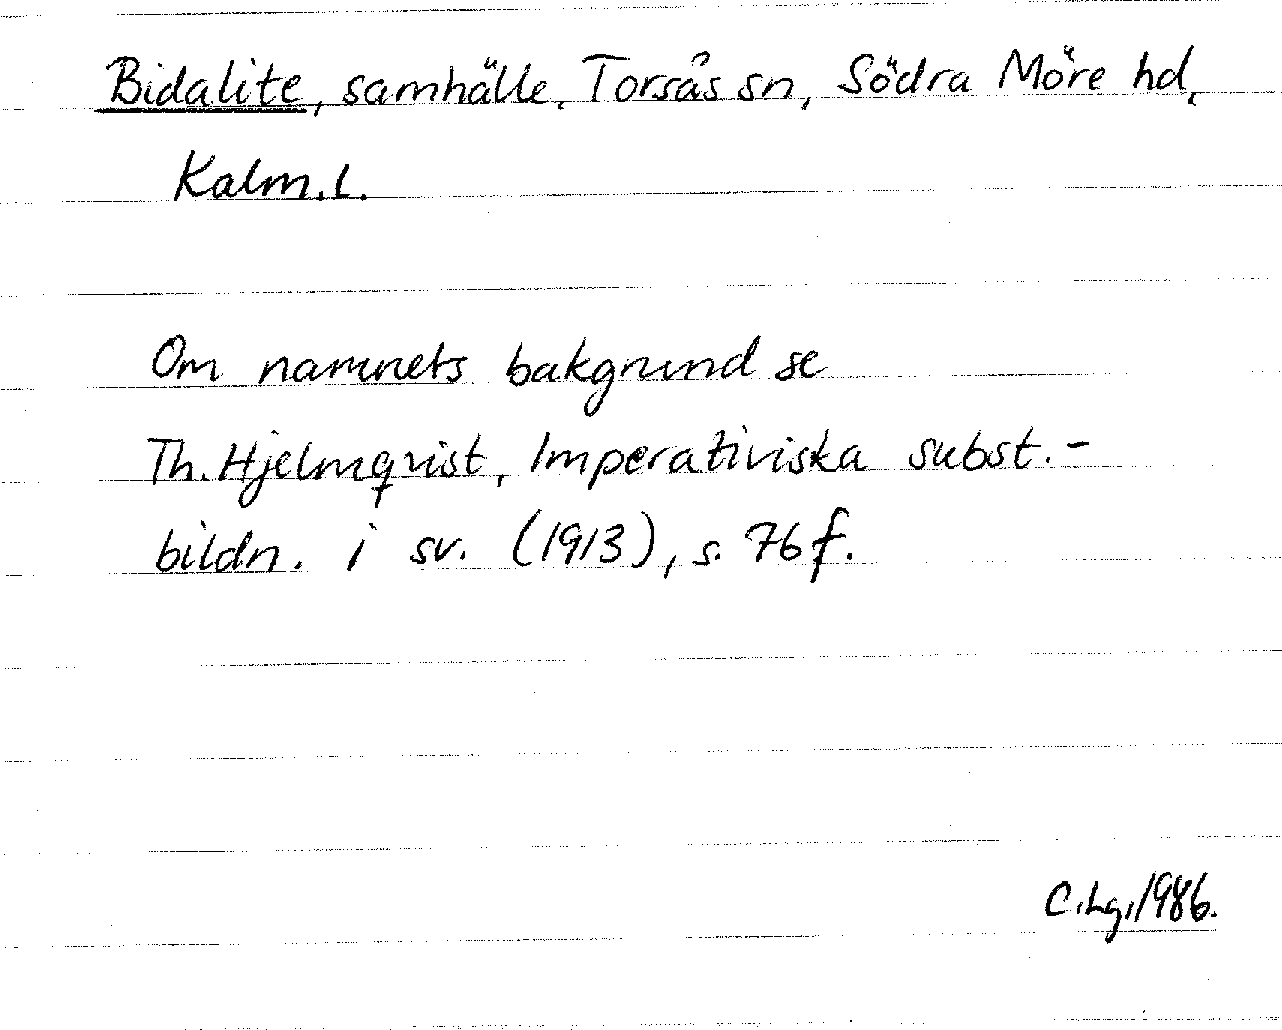 Bidalite, samhälle, Torsås sn, Södra Möre hd,
Kalm.l.
Om namnets bakgrund se
Th. Hjelmqvist, Imperativiska subst.-
bildn. i sv. (1913), s. 76 f.
C.Lg, 1986.